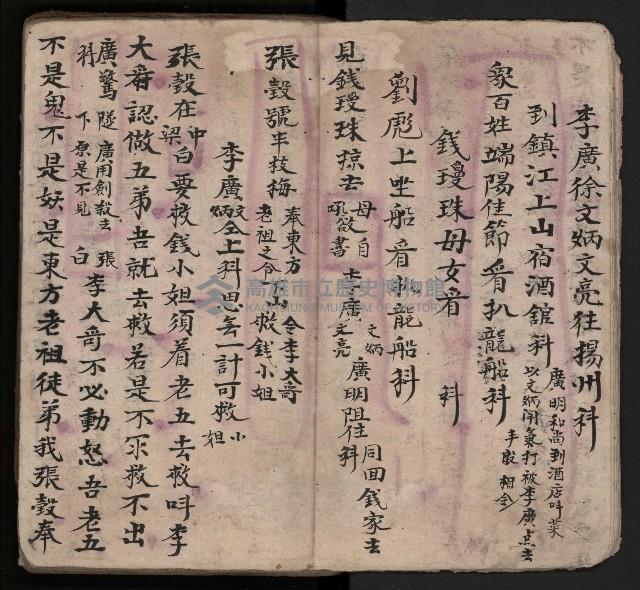 李廣徐文炳文亮往揚州科
到鎮江上山宿酒舘科 廣明和尚到酒店呌菜
以文炳開氣打被李廣点去
丰嚴相会
眾百姓端陽佳節看扒龍船科
錢瓊珠母女看 科
劉彪上坐船看扒龍船科
見錢瓊珠掠去 母自
吼欲書 李廣 文炳
文亮 廣明阻住科 同回錢家去
張穀號半枝梅 奉東方
老祖之令下山 令李大哥
救錢小姐
李廣文炳仝上科 思言一計可救小姐
張穀在中梁白要救錢小姐須着老五去救呌李
大哥認做五弟吾就去救若是不尔救不出
科 廣驚隧 廣用劍殺去
下原是不見 張白 李大哥不必動怒吾老五
不是鬼不是妖是東方老祖徒弟我張穀奉
高雄市立歷史博物館
KAOHSIUNG MUSEUM OF HISTORY